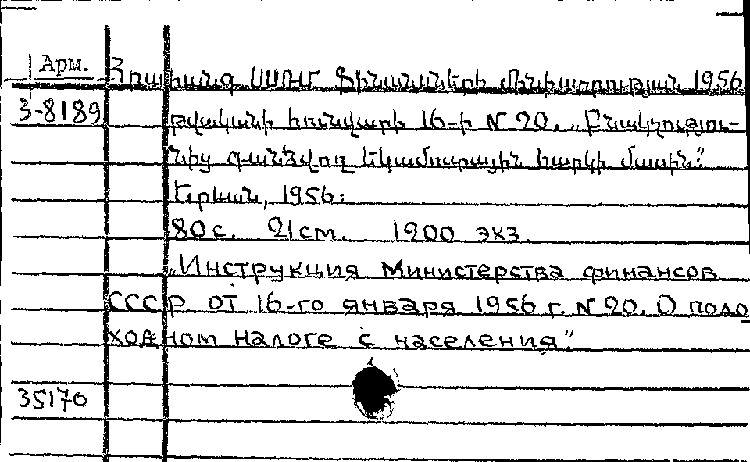 Арм.
Հրահանգ ՍՍՌՄ Ֆինանսների մինիստրության 1956
3-8189
թվականի հունվարի 16-ի N 20. „Բնակչությու-
նից գանձվող եկամտային հարկի մասին:"
Երևան, 1956:
80 с. 21 см. 1200 экз.
„Инструкция Министерства финансов
СССР от 16-го января 1956 г. N 20. О подо
ходном налоге с населения".
35170